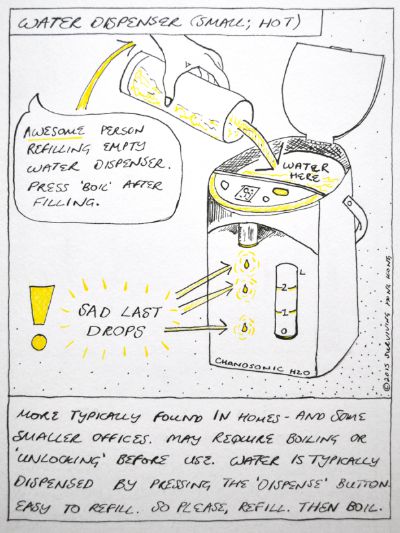 WATER DISPENSER (SMALL; HOT)
AWESOME PERSON
REFILLING EMPTY
WATER DISPENSER.
PRESS 'BOIL' AFTER
FILLING.
WATER
HERE
L
2
1
0
!
SAD LAST
DROPS
CHANOSONIC H2O
©2015 SURVIVING HONG KONG
MORE TYPICALLY FOUND IN HOMES - AND SOME
SMALLER OFFICES. MAY REQUIRE BOILING OR
'UNLOCKING' BEFORE USE. WATER IS TYPICALLY
DISPENSED BY PRESSING THE 'DISPENSE' BUTTON.
EASY TO REFILL. SO PLEASE, REFILL. THEN BOIL.